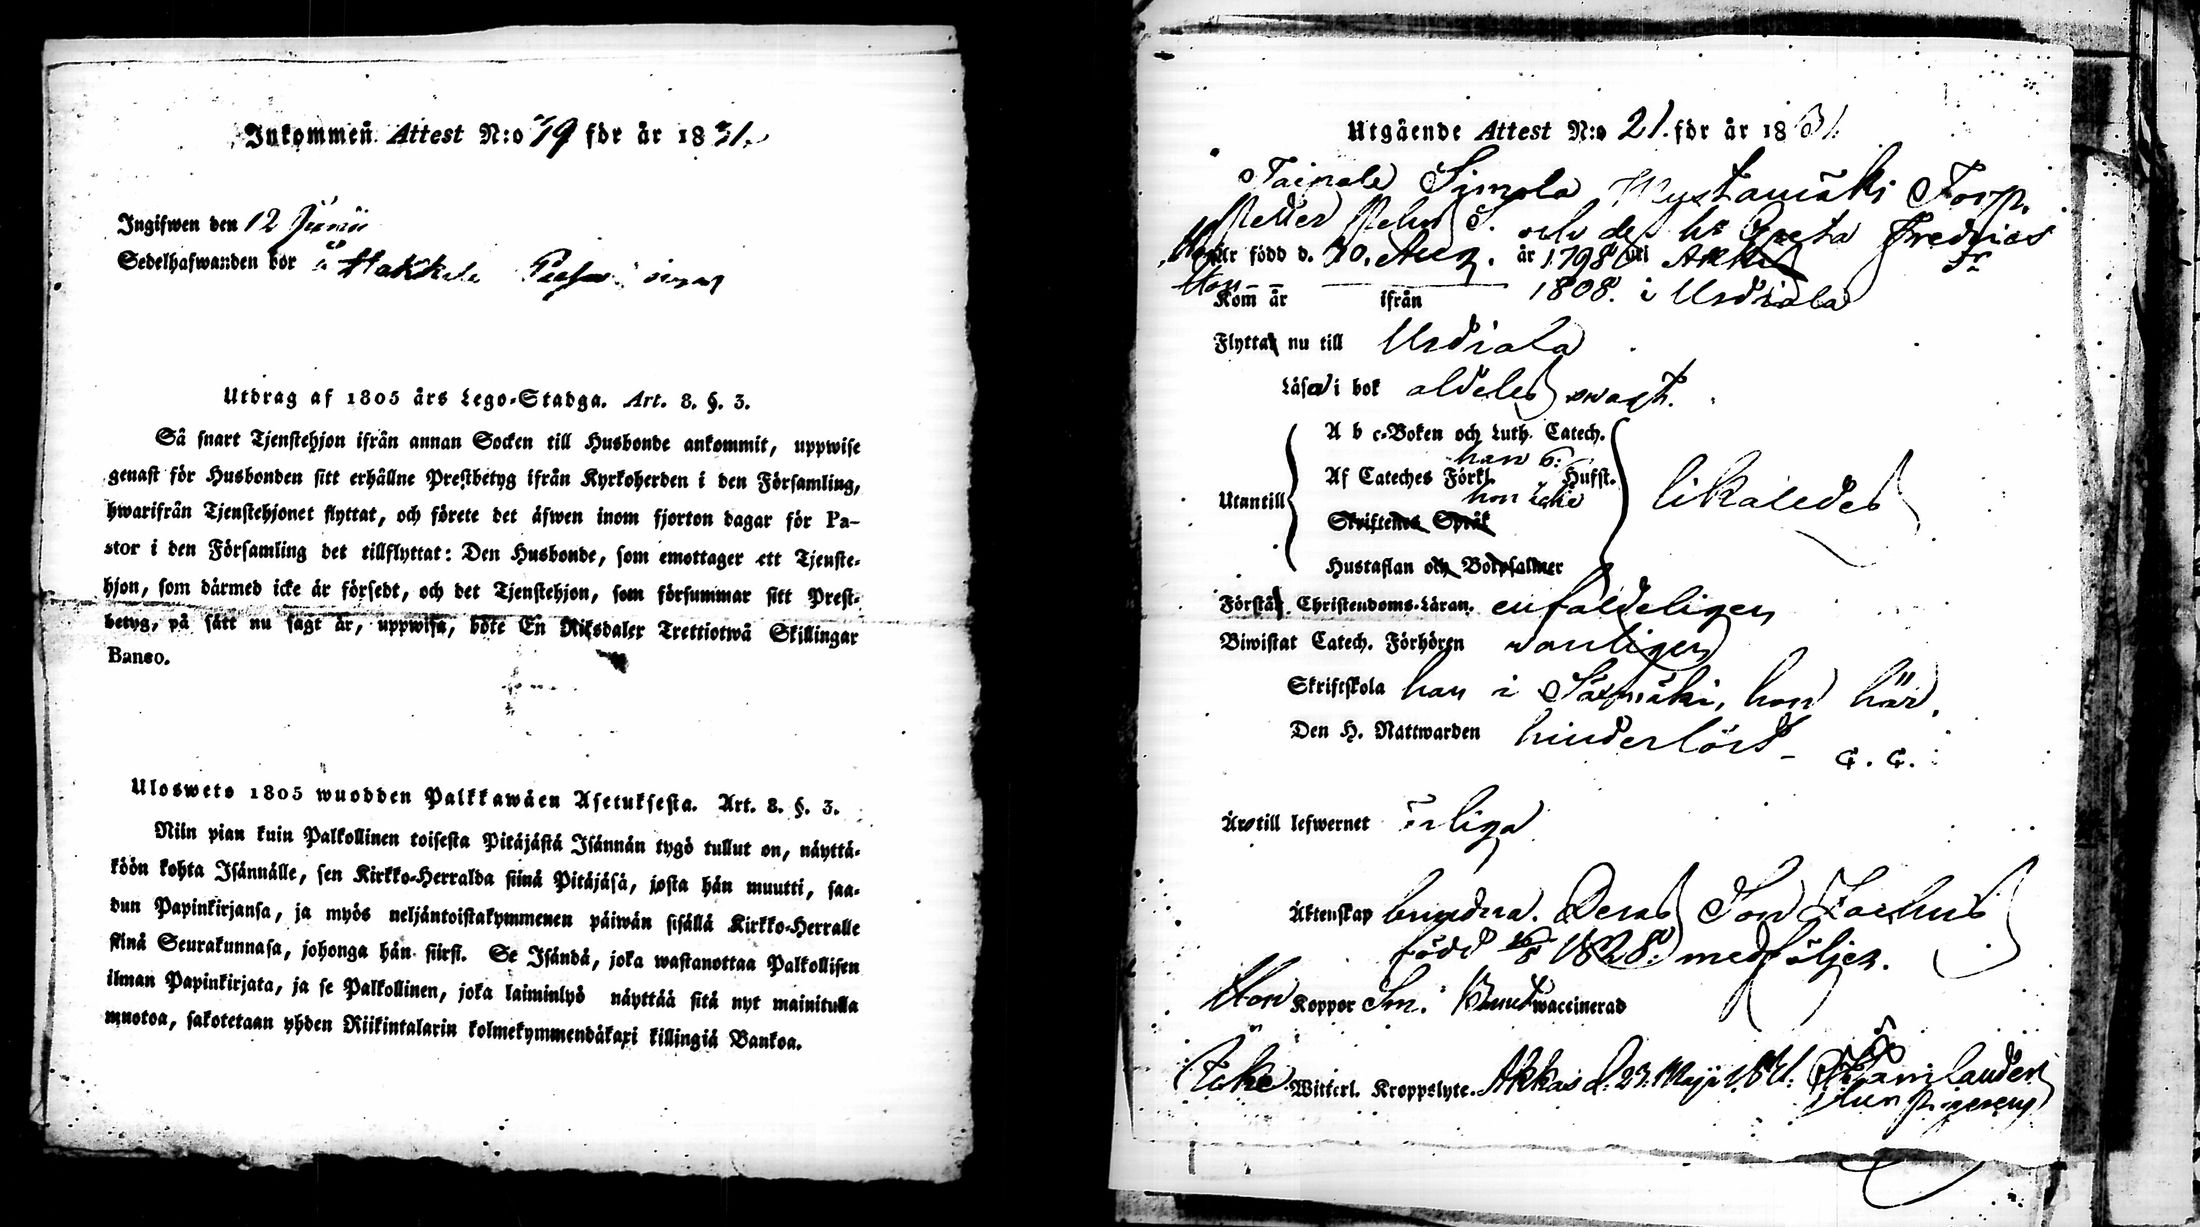 Inkommen Attest N:o 79 för år 1831.
Ingifwen den 12 Junii
Sedelhafwanden bor i Hakkila
Utdrag af 1805 års Lego-Stadga. Art. 8. §. 3.
Så snart Tjenstehjon ifrån annan Socken till Husbonde ankommit, uppwise
genast för Husbonden sitt erhållne Prestbetyg ifrån Kyrkoherden i den Församling,
hwarifrån Tjenstehjonet flyttat, och förete det äfwen inom fjorton dagar för Pa-
stor i den Församling det tillflyttat: Den Husbonde, som emottager ett Tjenste-
hjon, som därmed icke är försedt, och det Tjenstehjon, som försummar sitt Prest-
betyg, på sätt nu sagt är, uppwisa, böte En Riksdaler Trettiotwå Skillingar
Banco.
Ulosweto 1805 wuodden Palkkawäen Asetuksesta. Art. 8. §. 3.
Niin pian kuin Palkollinen toisesta Pitäjästä Isännän tygö tullut on, näyttä-
köön kohta Isännälle, sen Kirkko-Herralda siinä Pitäjäsä, josta hän muutti, saa-
dun Papinkirjansa, ja myös neljäntoistakymmenen päiwän sisällä Kirkko-Herralle
siinä Seurakunnasa, johonga hän siirsi. Se Isändä, joka wastanottaa Palkollisen
ilman Papinkirjata, ja se Palkollinen, joka laiminlyö näyttää sitä nyt mainitulla
muotoa, sakotetaan yhden Riikintalarin kolmekymmendäkaxi killingiä Bankoa.
Utgående Attest N:o 21. för år 1831.
Simola Torp.
Petter S. och dess h:u Greta Fredrics dr
Han är född d. 30. Aug. år 1798 uti Akkas
Hon 1808. i Urdiala
Kom år ifrån
Flyttar nu till Urdiala
Läser i bok aldeles swagt.
A b c-Boken och Luth. Catech.
han 6:
Af Cateches Förkl. Hufst.
hon icke
Utantill likaledes
Skriftenes Språk
Hustaflan och Botpsalmer
Förstår Christendoms-Läran. enfaldeligen
Biwistat Catech. Förhören wanligen
Skriftskola han i Säxmäki, hon här.
Den H. Nattwarden hinderlöst
Äro till lefwernet ärliga
Äktenskap bundna. Deras Son Zachris
född 1828. medföljer.
Hon Koppor waccinerad
Icke Witterl. Kroppslyte. Akkas d. 23. Maji 1831.